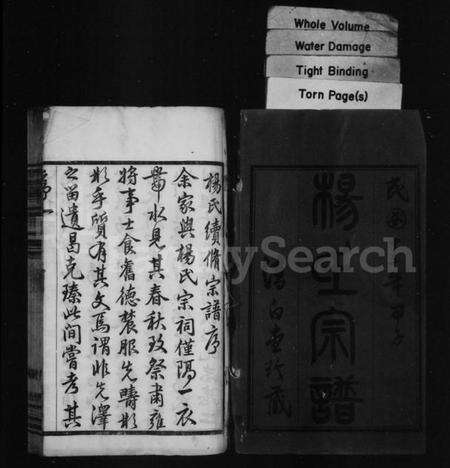 Whole Volume
Water Damage
Tight Binding
Torn Page(s)
楊氏續脩宗譜序
余家與楊氏宗祠僅隔一衣
帶水見其春秋致祭肅雍
將事士食舊德農服先疇彬
彬乎質有其文焉謂非先澤
之留遺曷克臻此間嘗考其
民國 年甲子
楊氏宗譜
白堂珍藏
MySearch